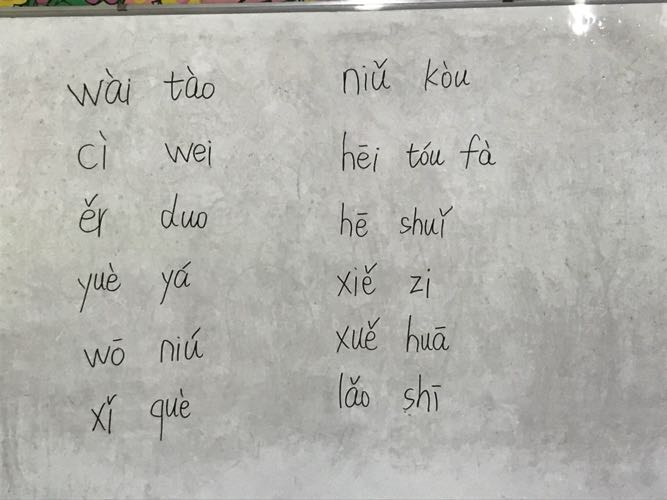 wài tào
cì wei
ěr duo
yuè yá
wō niú
xǐ què
niǔ kòu
hēi tóu fà
hē shuǐ
xiě zi
xuě huā
lǎo shī